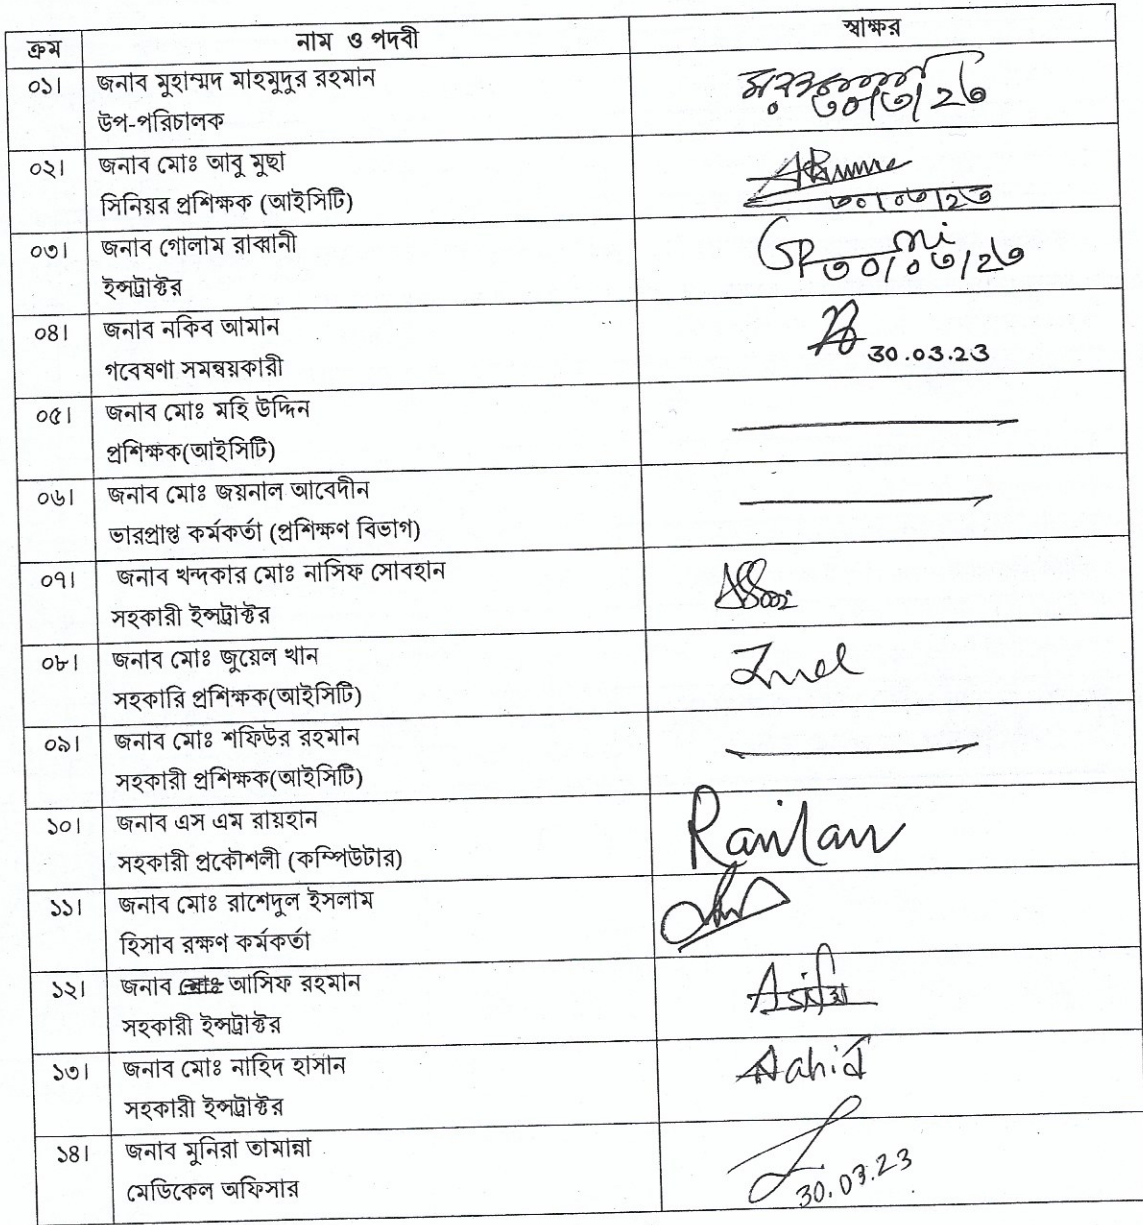 ক্রম নাম ও পদবী স্বাক্ষর
০১। জনাব মুহাম্মদ মাহমুদুর রহমান
উপ-পরিচালক
৩০/৩/২৩
০২। জনাব মোঃ আবু মুছা
সিনিয়র প্রশিক্ষক (আইসিটি)
৩০/০৩/২৩
০৩। জনাব গোলাম রাব্বানী
ইন্সট্রাক্টর
৩০/০৩/২৩
০৪। জনাব নকিব আমান
গবেষণা সমন্বয়কারী
30.03.23
০৫। জনাব মোঃ মহি উদ্দিন
প্রশিক্ষক(আইসিটি)
০৬। জনাব মোঃ জয়নাল আবেদীন
ভারপ্রাপ্ত কর্মকর্তা (প্রশিক্ষণ বিভাগ)
০৭। জনাব খন্দকার মোঃ নাসিফ সোবহান
সহকারী ইন্সট্রাক্টর
০৮। জনাব মোঃ জুয়েল খান
সহকারি প্রশিক্ষক(আইসিটি)
০৯। জনাব মোঃ শফিউর রহমান
সহকারী প্রশিক্ষক(আইসিটি)
১০। জনাব এস এম রায়হান
সহকারী প্রকৌশলী (কম্পিউটার)
১১। জনাব মোঃ রাশেদুল ইসলাম
হিসাব রক্ষণ কর্মকর্তা
১২। জনাব মোঃ আসিফ রহমান
সহকারী ইন্সট্রাক্টর
১৩। জনাব মোঃ নাহিদ হাসান Nahid
সহকারী ইন্সট্রাক্টর
১৪। জনাব মুনিরা তামান্না
মেডিকেল অফিসার
30.03.23